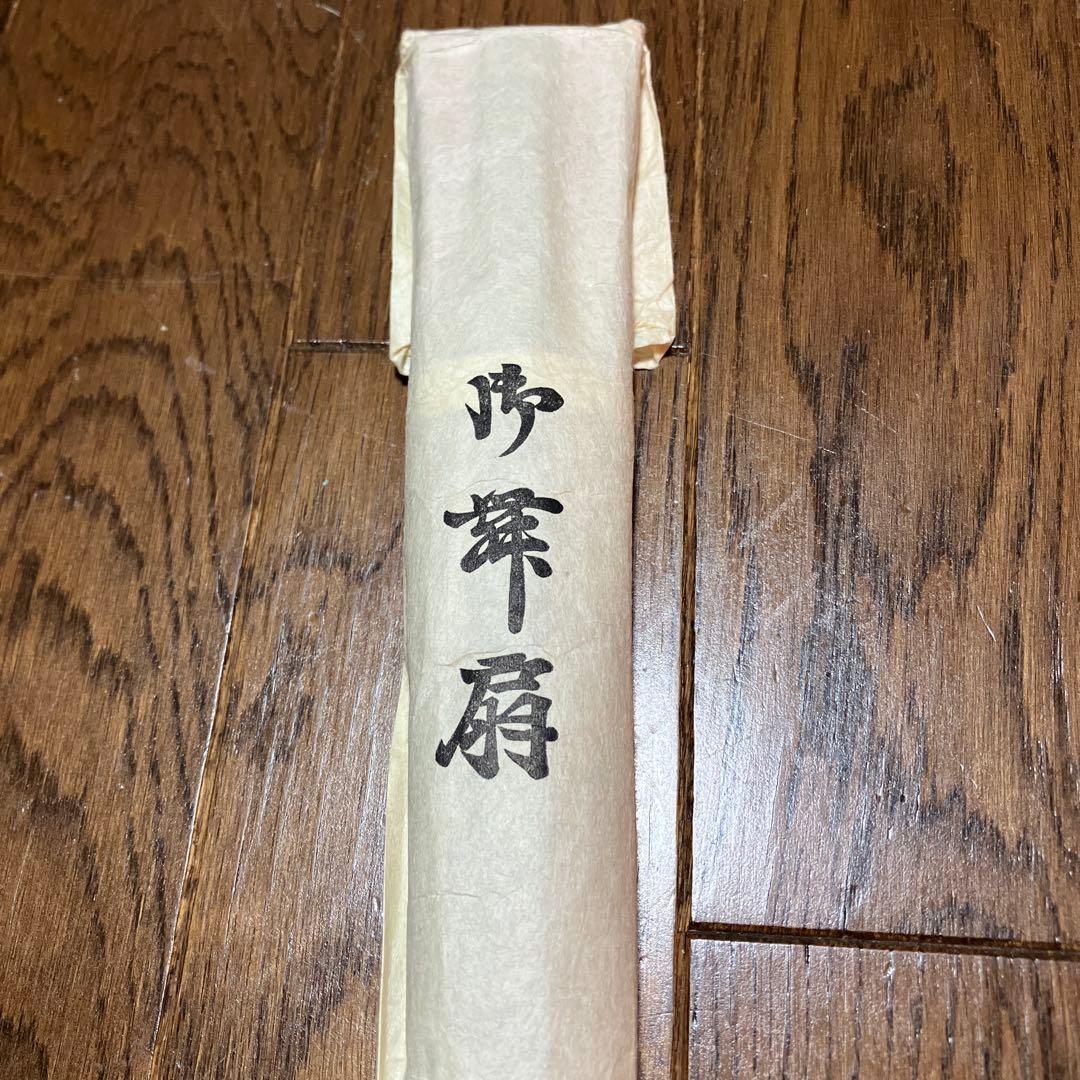 御舞扇